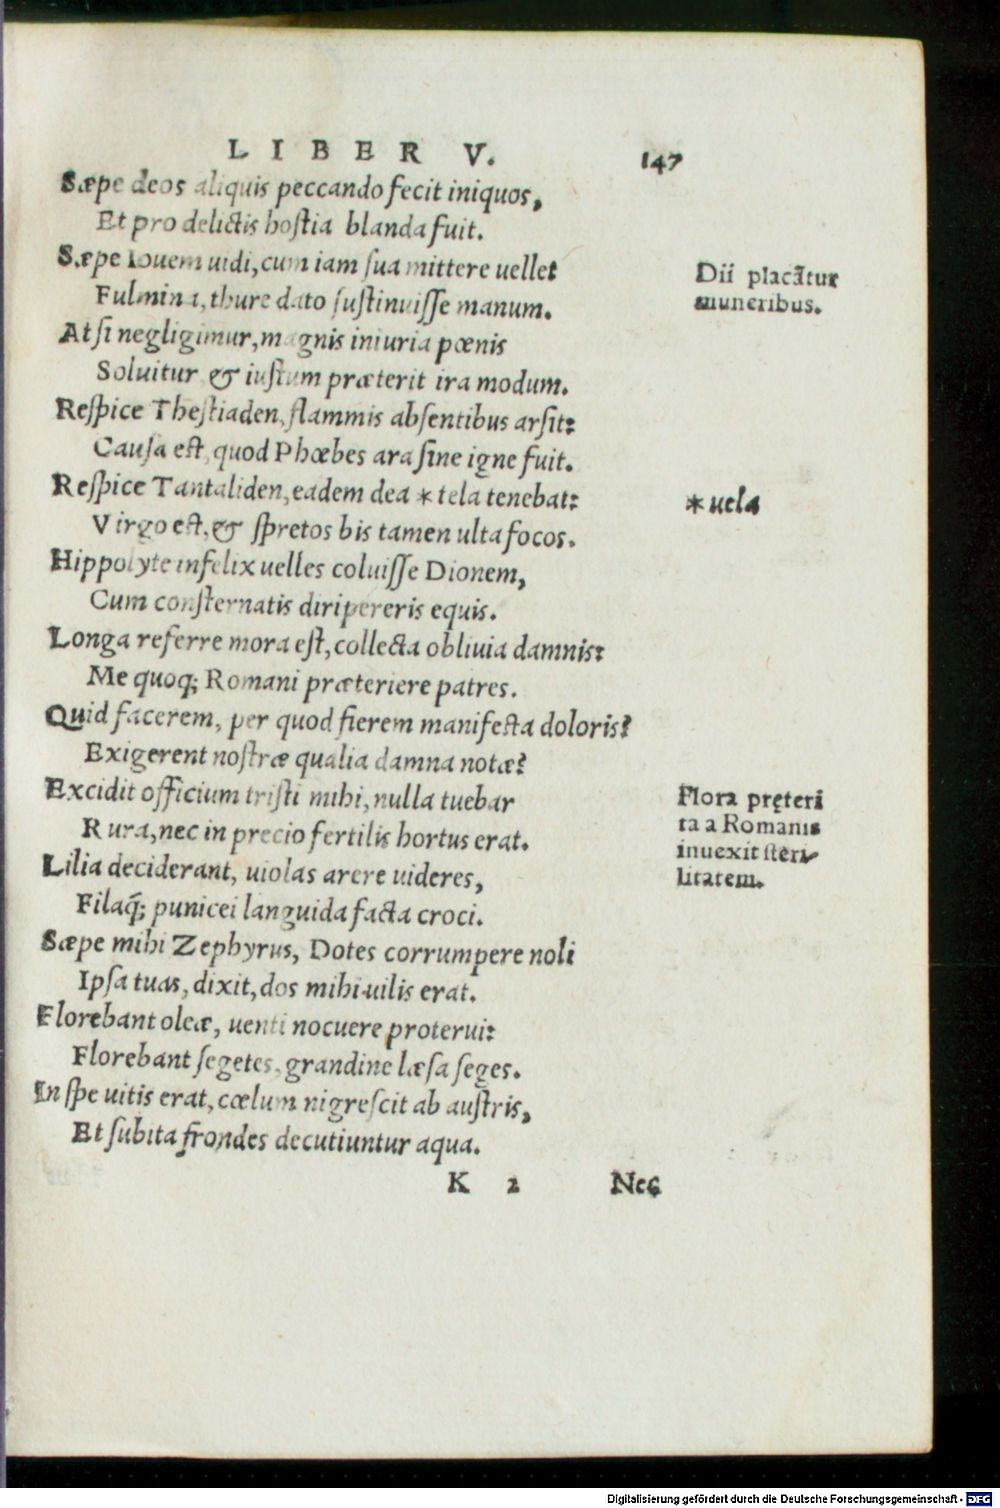 LIBER V. 147
Sæpe deos aliquis peccando fecit iniquos,
Et pro delictis hostia blanda fuit.
Sæpe Iouem uidi, cum iam sua mittere uellet
Fulmina, thure dato sustinuisse manum.
At si negligimur, magnis iniuria pœnis
Soluitur, & iustum præterit ira modum.
Respice Thestiaden, flammis absentibus arsit:
Causa est, quod Phœbes ara sine igne fuit.
Respice Tantaliden, eadem dea * tela tenebat:
Virgo est, & spretos bis tamen ulta focos.
Hippolyte infelix uelles coluisse Dionem,
Cum consternatis diripereris equis.
Longa referre mora est, collecta obliuia damnis:
Me quoq; Romani præteriere patres.
Quid facerem, per quod fierem manifesta doloris?
Exigerent nostræ qualia damna notæ?
Excidit officium tristi mihi, nulla tuebar
Rura, nec in precio fertilis hortus erat.
Lilia deciderant, uiolas arere uideres,
Filaq́; punicei languida facta croci.
Sæpe mihi Zephyrus, Dotes corrumpere noli
Ipsa tuas, dixit, dos mihi uilis erat.
Florebant oleæ, uenti nocuere proterui:
Florebant segetes, grandine læsa seges.
In spe uitis erat, cœlum nigrescit ab austris,
Et subita frondes decutiuntur aqua.
K 2 Nec
Dii placãtur
muneribus.
* uela
Flora pręteri
ta a Romanis
inuexit steri-
litatem.
Digitalisierung gefördert durch die Deutsche Forschungsgemeinschaft - DFG